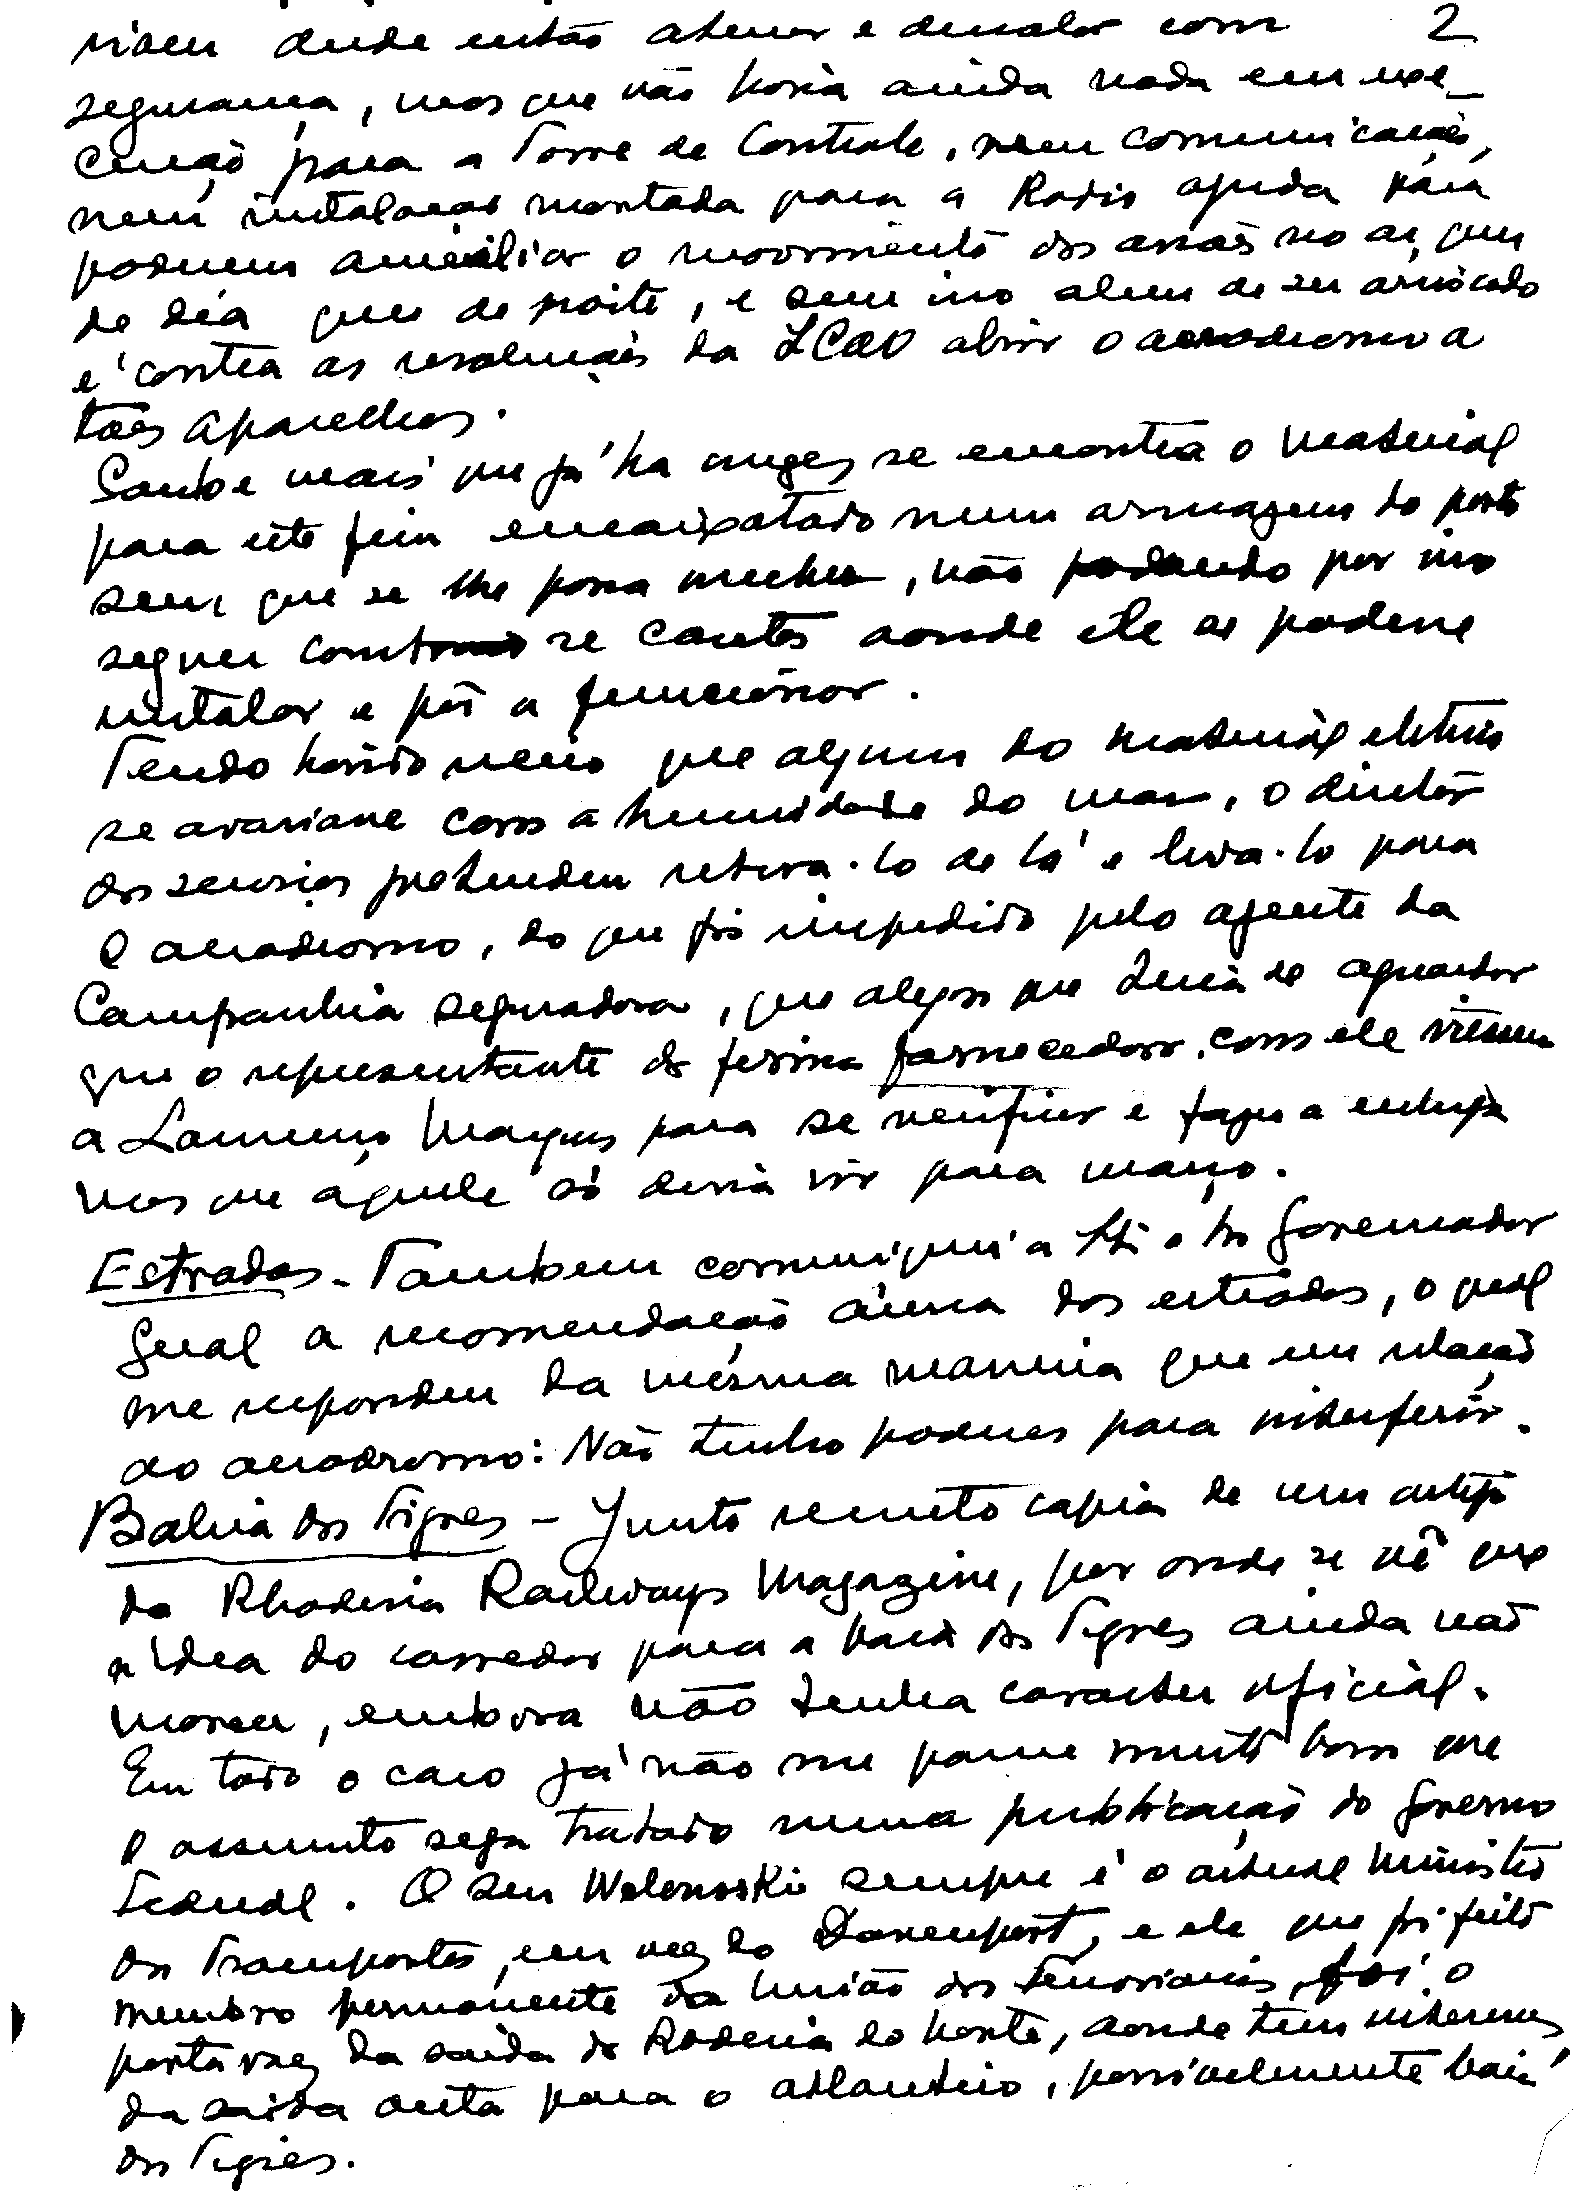 riam desde então aterrar e descolar com 2
segurança, mas que não havia ainda nada em exe_
cução para a Torre de Controle, nem comunicações,
nem instalação montada para a Radio ajuda para
poderem auxiliar o movimento dos aviões no ar, quer
de dia quer de noite, e sem isso alem de ser arriscado
é contra as resoluções da ICAO abrir o aerodromo a
tães aparelhos.
Soube mais que já ha meses se encontra o material
para este fim encaixotado num armazem do porto
sem que se lhe possa mecher, não podendo por isso
sequer construir se casotas aonde ele se podesse
instalar e pôr a funcionar.
Tendo havido receio que algum do material eletrico
se avariasse com a humidade do mar, o diretor
dos serviços pretendeu retira-lo de lá e leva-lo para
o aerodromo, do que foi impedido pelo agente da
Companhia seguradora, que alegou que teria de aguardar
que o representante da firma fornecedora com ele viesse
a Lourenço Marques para se verificar e fazer a entrega
mas que aquele só devia vir para março.
Estradas - Tambem comuniquei a St. o Sr Governador
Geral a recomendação àcerca das estradas, o qual
me respondeu da mesma maneira que em relação
ao aerodromo: Não tenho poderes para interferir.
Bahia dos Tigres - Junto remeto copia de um artigo
da Rhodesia Railways Magazine, por onde se vê que
a idea do corredor para a baia dos Tigres ainda não
morreu, embora não tenha caracter oficial.
Em todo o caso já não me parece muito bom que
o assunto seja tratado numa publicação do governo
Federal. O seu Welenoski sempre é o actual Ministro
dos Transportes, em vez do Davenport, e ele que foi feito
membro permanente da União dos Ferroviarios, foi o
porta voz da saida da Rodesia do Norte, aonde tem interesses
da saida desta para o Atlantico, possivelmente baia
dos Tigres.